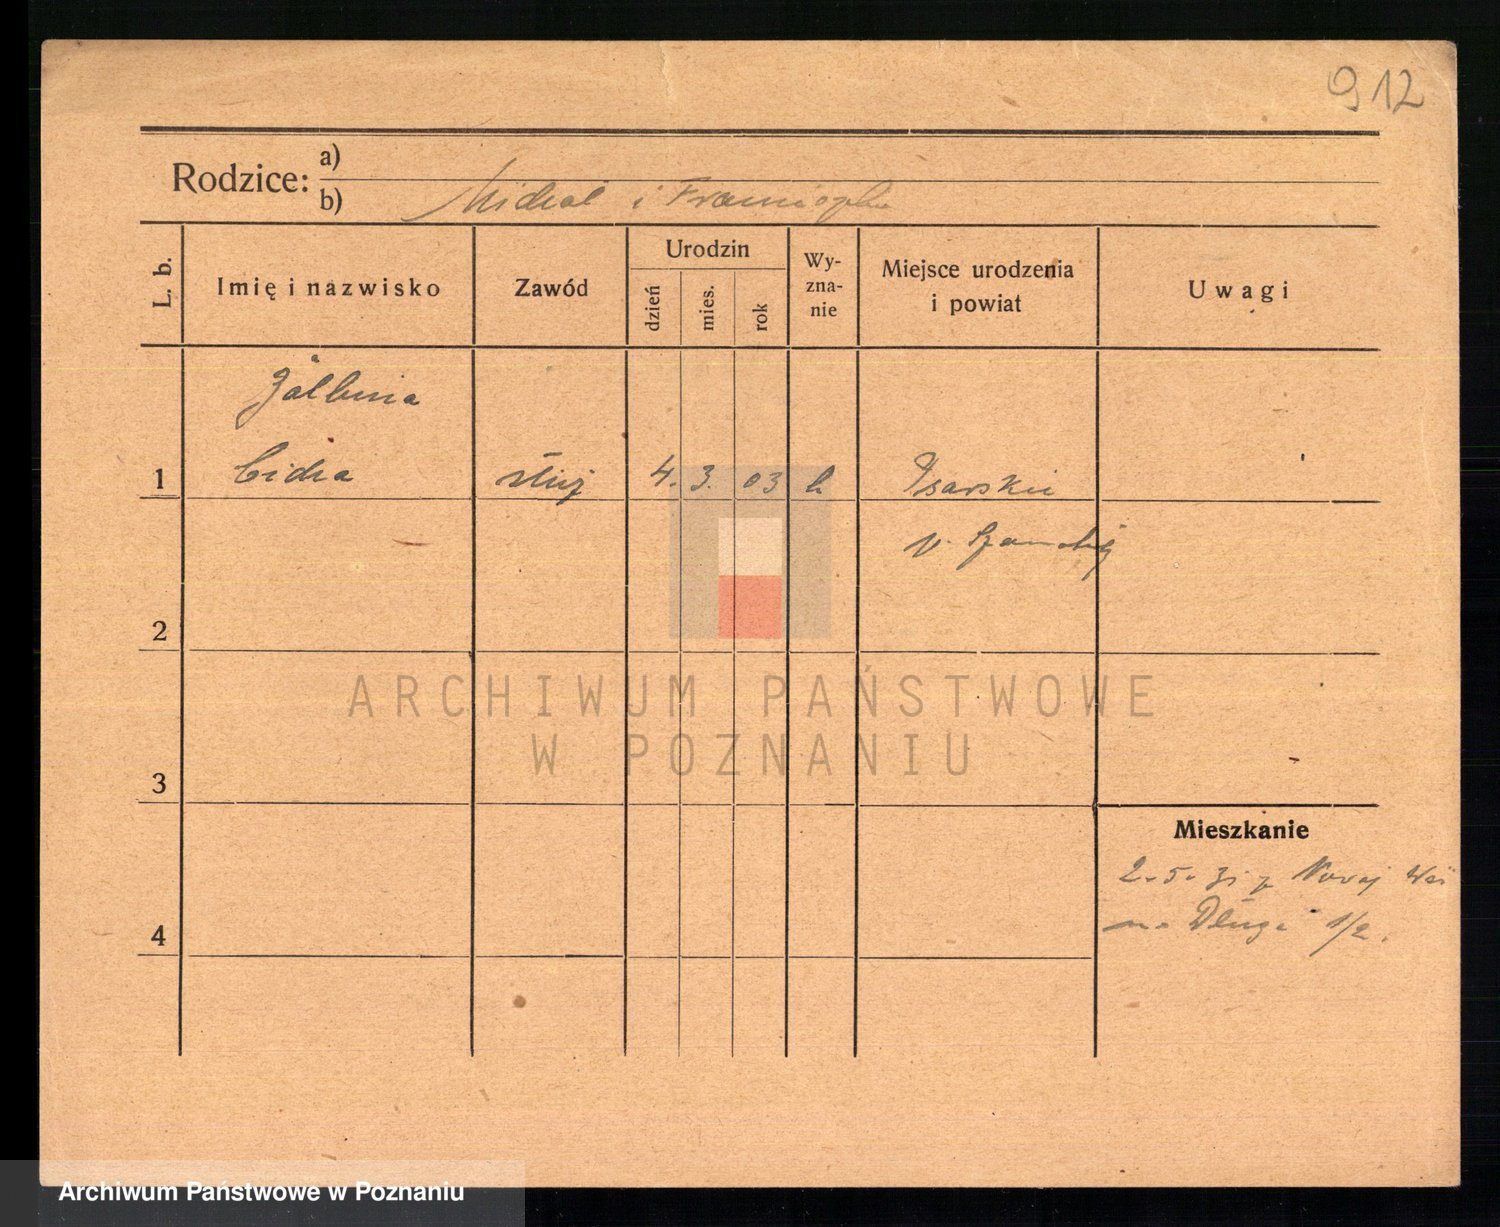 912
Rodzice: a)
b) Michał i Franciszka
L. b. Imię i nazwisko Zawód Urodzin dzień mies. rok Wy-zna-nie Miejsce urodzenia i powiat Uwagi
Balbina
1 Cicha służ 4. 3. 03 k Psarskie
p. Szamotuły
2
ARCHIWUM PAŃSTWOWE
W POZNANIU
3
Mieszkanie
2.5.31 z Nowej Wsi
na Długa 1/2.
4
Archiwum Państwowe w Poznaniu